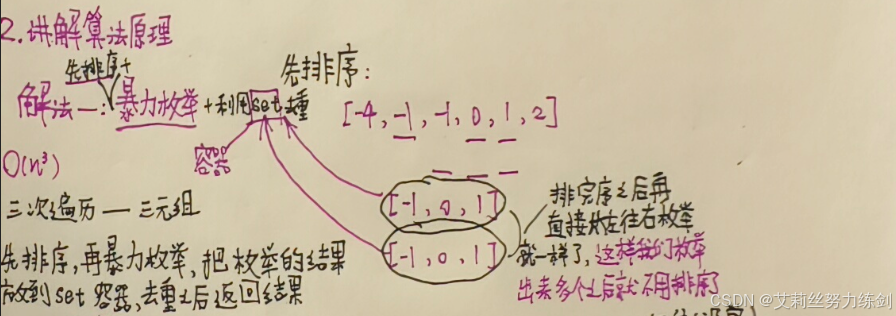 2.讲解算法原理
先排序+
解法一:暴力枚举+利用set去重
容器
O(n³)
三次遍历——三元组
先排序,再暴力枚举,把枚举的结果
放到set容器,去重之后返回结果
先排序:
[-4,-1,-1,0,1,2]
[-1,0,1]
[-1,0,1]
排完序之后再
直接从左往右枚举
就一样了,这样我们枚举
出来多个之后就不用排序了
CSDN @艾莉丝努力练剑